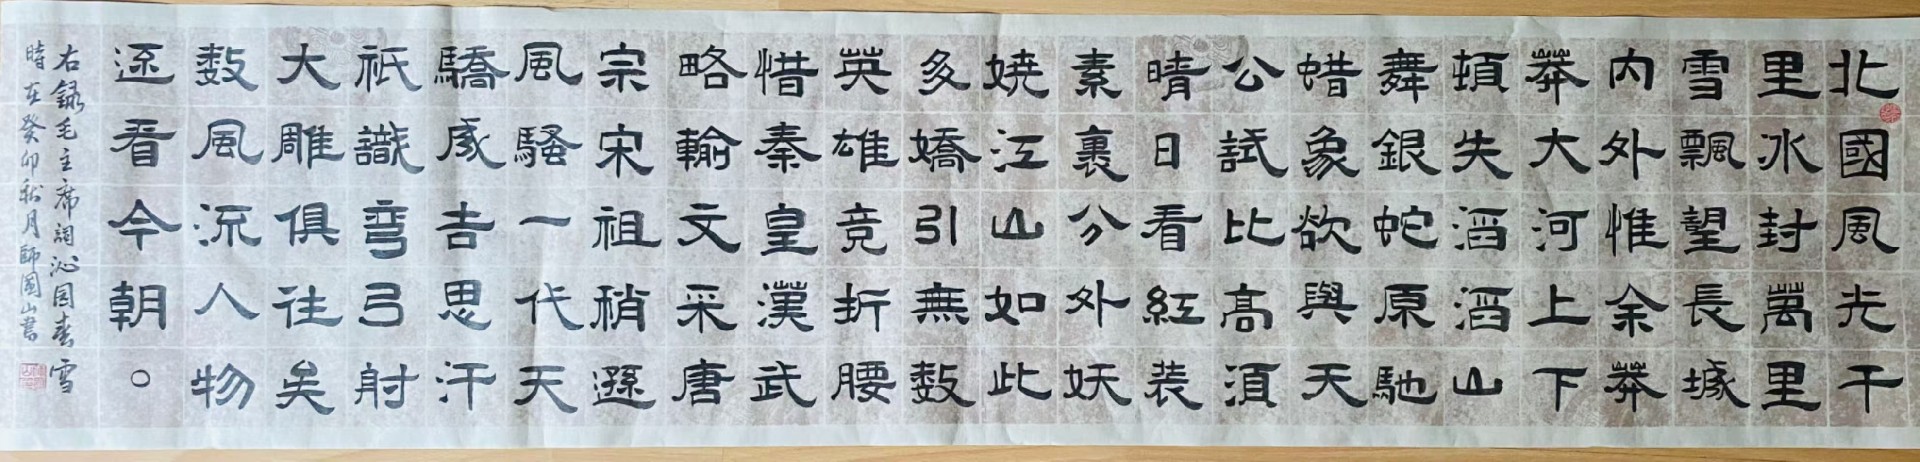 北國風光千
里水封萬里
雪飄望長城
内外惟余莽
莽大河上下
頓失滔滔山
舞銀蛇原馳
蜡象欲與天
公試比高須
晴日看紅装
素裹分外妖
嬈江山如此
多嬌引無數
英雄竞折腰
惜秦皇漢武
略輸文采唐
宗宋祖稍遜
風騷一代天
驕成吉思汗
祇識彎弓射
大雕俱往矣
數風流人物
还看今朝。
右録毛主席詞沁园春雪
時在癸卯秋月師國山書